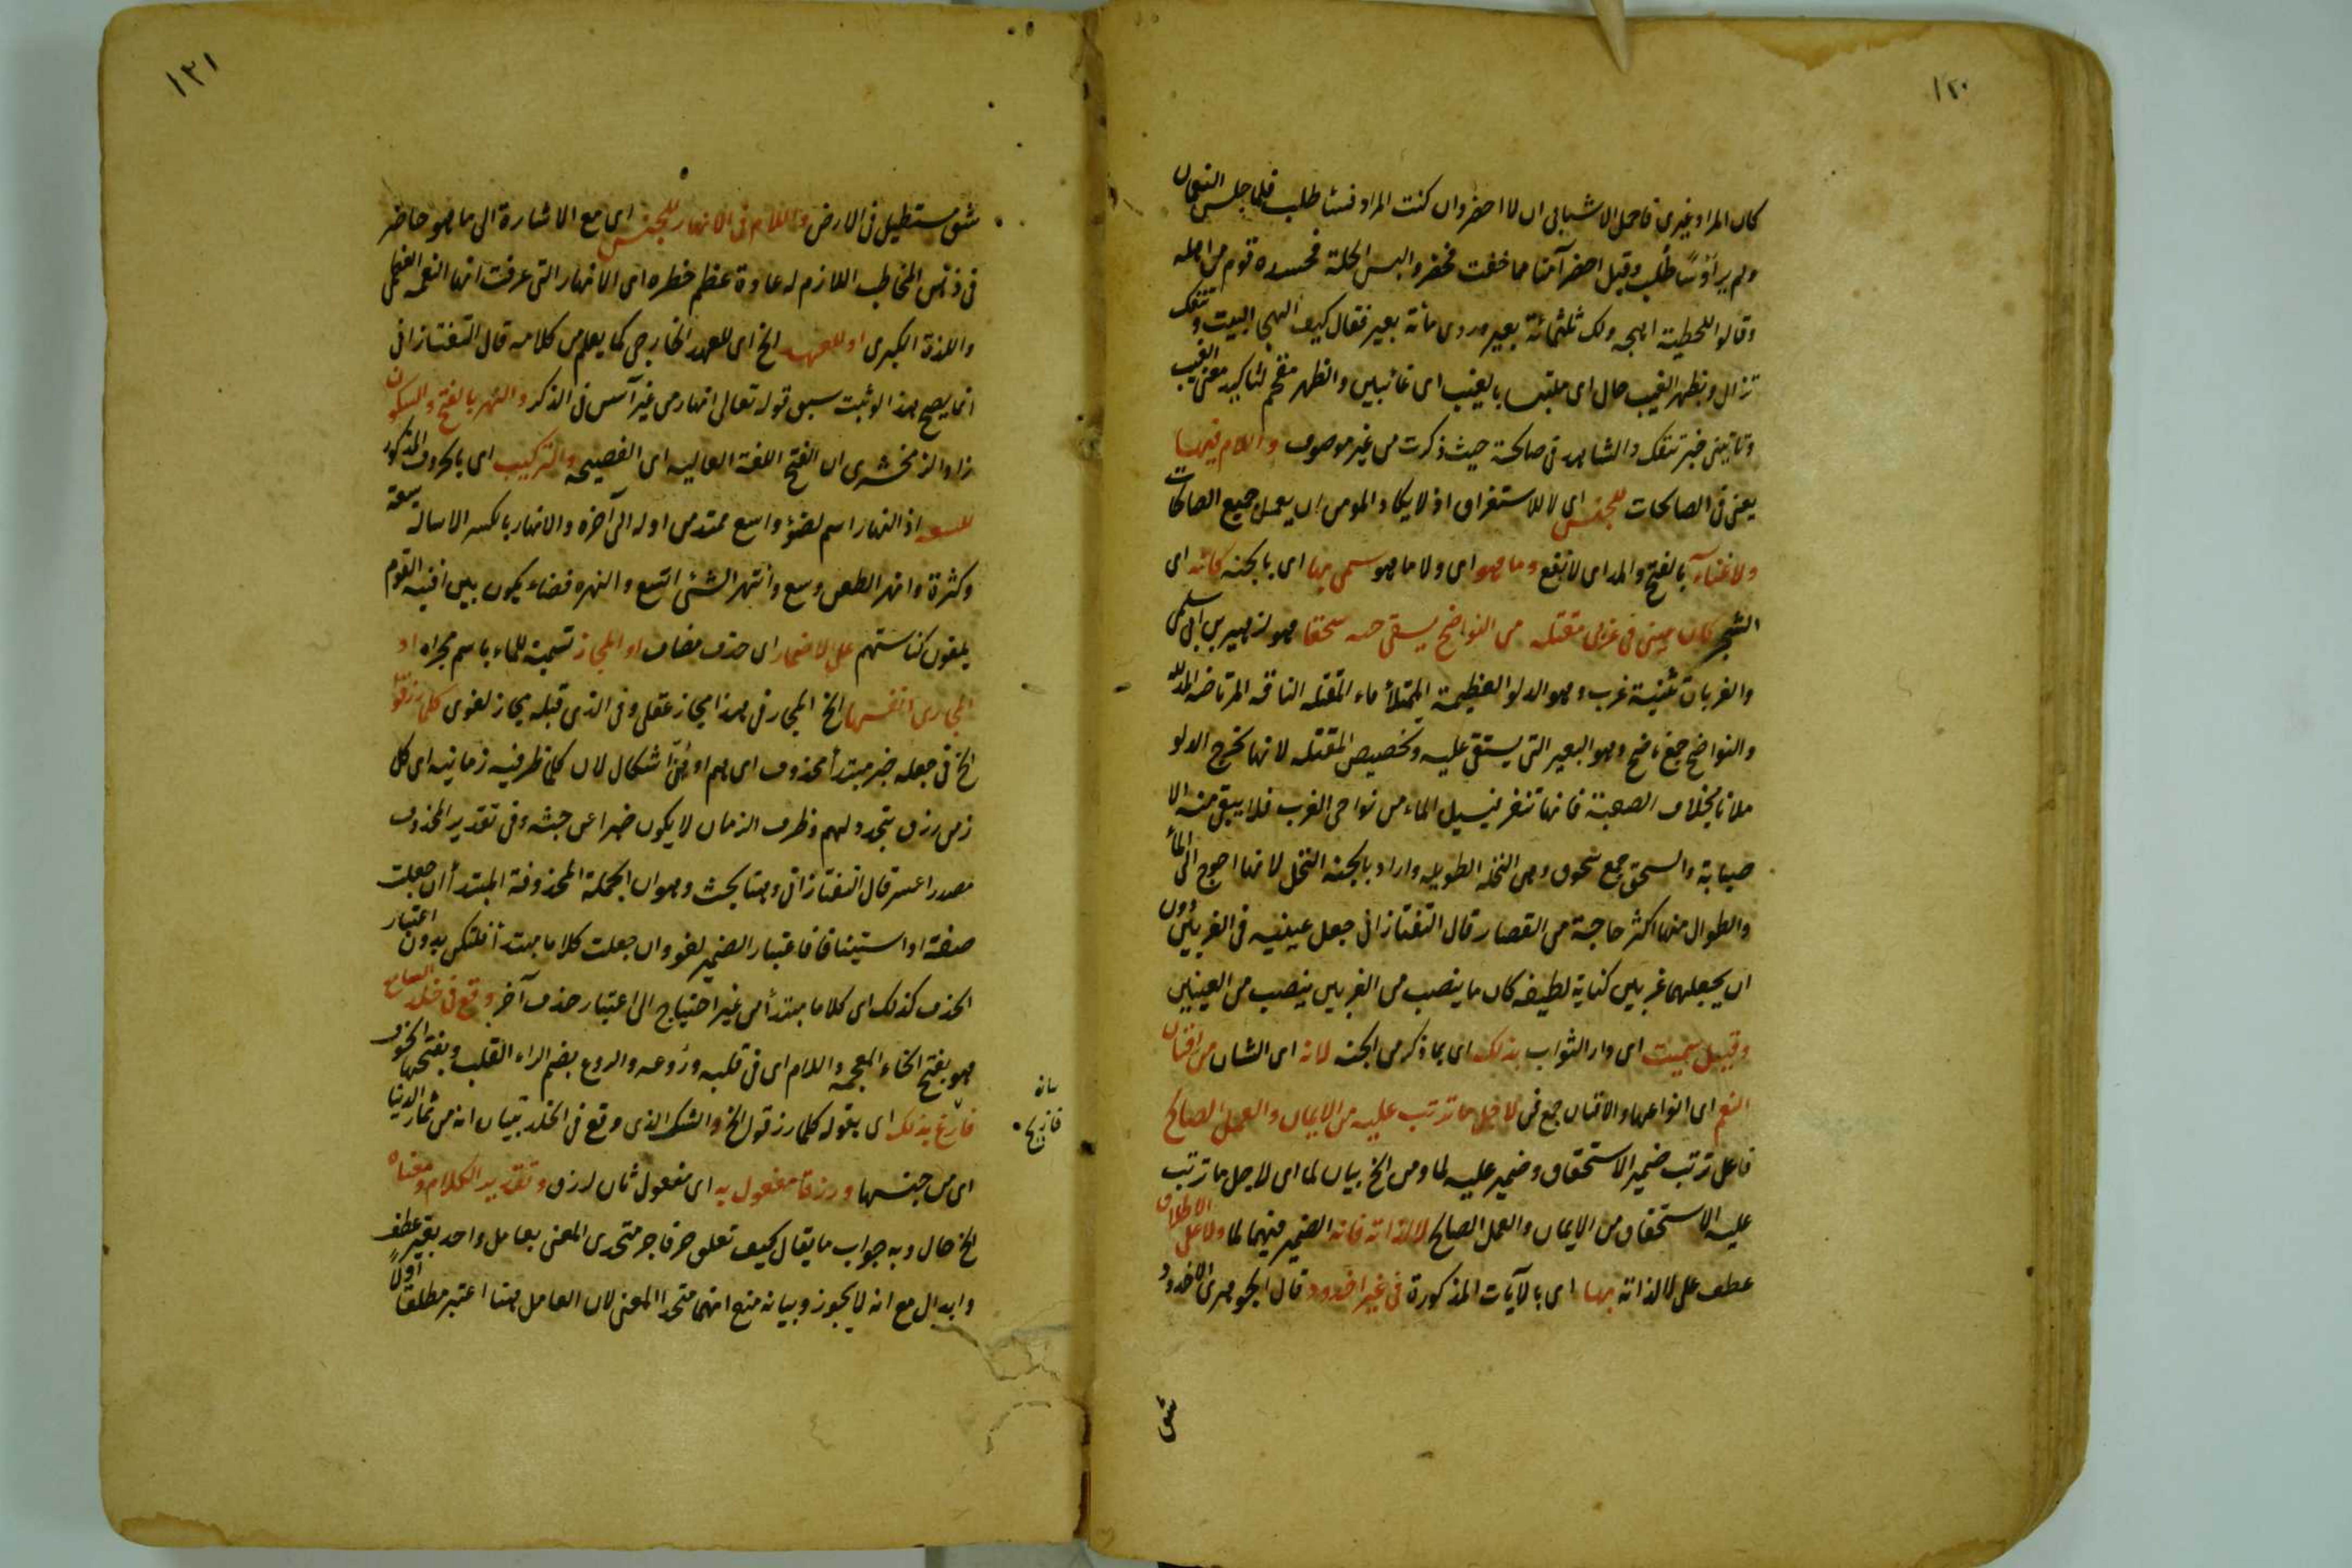 ١٢٠
كان المراد غيري فاجمل الاشيا بى ان لا احضر وان كنت المراد فسأطلب فلما جلس النعمان
ولم ير اوسًا طلب وقيل احضر آمنا مما خفت فحضر والبس الحلة فحسده قوم من اهله
وقالوا للحطيئة اهجه ولك ثلثمائة بعير وروى مأية بعير فقال كيف الهجا البيت وتنفك
تزال وبظهر الغيب حال اى ملتبسا بالغيب اى غائبين والظهر مقحم لتاكيد معنى الغيب
وتاتينى خبر تنفك والشاهد فى صالحة حيث ذكرت من غير موصوف واللام فيها
يعنى فى الصالحات للجنس اى لا للاستغراق اذ لا يكاد المومن ان يعمل جميع الصالحات
ولا غناء بالفتح والمد اى لا نفع وما هو اى ولا ما هو سمى بها اى بالجنة كانه اى
الشجر كان عينى فى غربى مقتلة من النواضح يسقى جنة سحقا هو لزهير بن ابى سلمى
والغربان تثنية غرب وهو الدلو العظيمة الممتلأ ماء المقتلة الناقة المرتاضة المذللة
والنواضح جمع ناضح وهو البعير التى يستقى عليه وتخصيص المقتلة لانها تخرج الدلو
ملانا بخلاف الصعبة فانها تنفر فيسيل الماء من نواحى الغرب فلا يبقى منه الا
صبابة والسحق جمع سحوق وهى النخلة الطويلة واراد بالجنة النخل لانها احوج الى الماء
والطوال منها اكثر حاجة من القصار قال التفتازانى جعل عينيه فى الغربين دون
ان يجعلهما غربين كناية لطيفة كان ما ينصب من الغربين ينصب من العينين
وقيل سميت اى دار الثواب بذلك اى بما ذكر من الجنة لانه اى الشان من افنان
النعم اى انواعها والافنان جمع فن لاجل ما ترتب عليه من الايمان والعمل الصالح
فاعل ترتب ضمير الاستحقاق وضمير عليه لما ومن الخ بيان لما اى لاجل ما ترتب
عليه الاستحقاق من الايمان والعمل الصالح لا لذاته فانه الضمير فيهما لما ولا على الاطلاق
عطف على لا لذاته بها اى بالآيات المذكورة فى غير اخدود قال الجوهرى الاخدود
شق
١٢١
شق مستطيل فى الارض واللام فى الانهار للجنس اى مع الاشارة الى ما هو حاضر
فى ذهن المخاطب اللازم له عادة عظم خطره اى الانهار التى عرفت انها النعمة العظمى
واللذة الكبرى او للعهد الخ اى للعهد الخارجى كما يعلم من كلامه قال التفتازانى
انما يصح هذا لو ثبت سبق قوله تعالى انهار من غير آسن فى الذكر والنهر بالفتح والسكون
زاد الزمخشرى ان الفتح اللغة العالية اى الفصيحة والتركيب اى بالحروف المذكور
للسعة اذ النهار اسم لضوء واسع ممتد من اوله الى آخره والانهار بالكسر الاسالة بسعة
وكثرة وانهر الطعن وسع وانتهر الشئ اتسع والنهرة فضاء يكون بين افنية القوم
يلقون كناستهم على الاضمار اى حذف مضاف او المجاز تسمية للماء باسم مجراه او
المجارى انفسها الخ المجاز فى هذا مجاز عقلى وفى الذى قبله مجاز لغوى كلما رزقوا
الخ فى جعله خبر مبتدأ محذوف اى هم او هى اشكال لان كلما ظرفية زمانية اى كل
زمن رزق يتجدد لهم وظرف الزمان لا يكون خبرا عن جثة وفى تقدير المحذوف
مصدرا عسر قال التفتازانى وهنا بحث وهو ان الجملة المحذوفة المبتدأ ان جعلت
صفة او استينافا فاعتبار الضمير لغو وان جعلت كلاما مبتدأ فلتكن بدون اعتبار
الحذف كذلك اى كلاما مبتدأ من غير احتياج الى اعتبار حذف آخر وقع فى خلد السامع
هو بفتح الخاء المعجمة واللام اى فى قلبه وروعه والروع بضم الراء القلب وبفتحها الخوف
فازيح بذلك اى بقوله كلما رزقوا الخ والشك الذى وقع فى الخلد تبيان انه من ثمار الدنيا
اى من جنسها ورزقا مفعول به اى مفعول ثان لرزق وتقدير الكلام ومعناه
الخ حال وبه جواب ما يقال كيف تعلق حرفا جر متحدى المعنى بعامل واحد بغير عطف
وابدال مع انه لا يجوز وبيانه منع انهما متحدا المعنى لان العامل هنا اعتبر مطلقا اولاً
فازيح